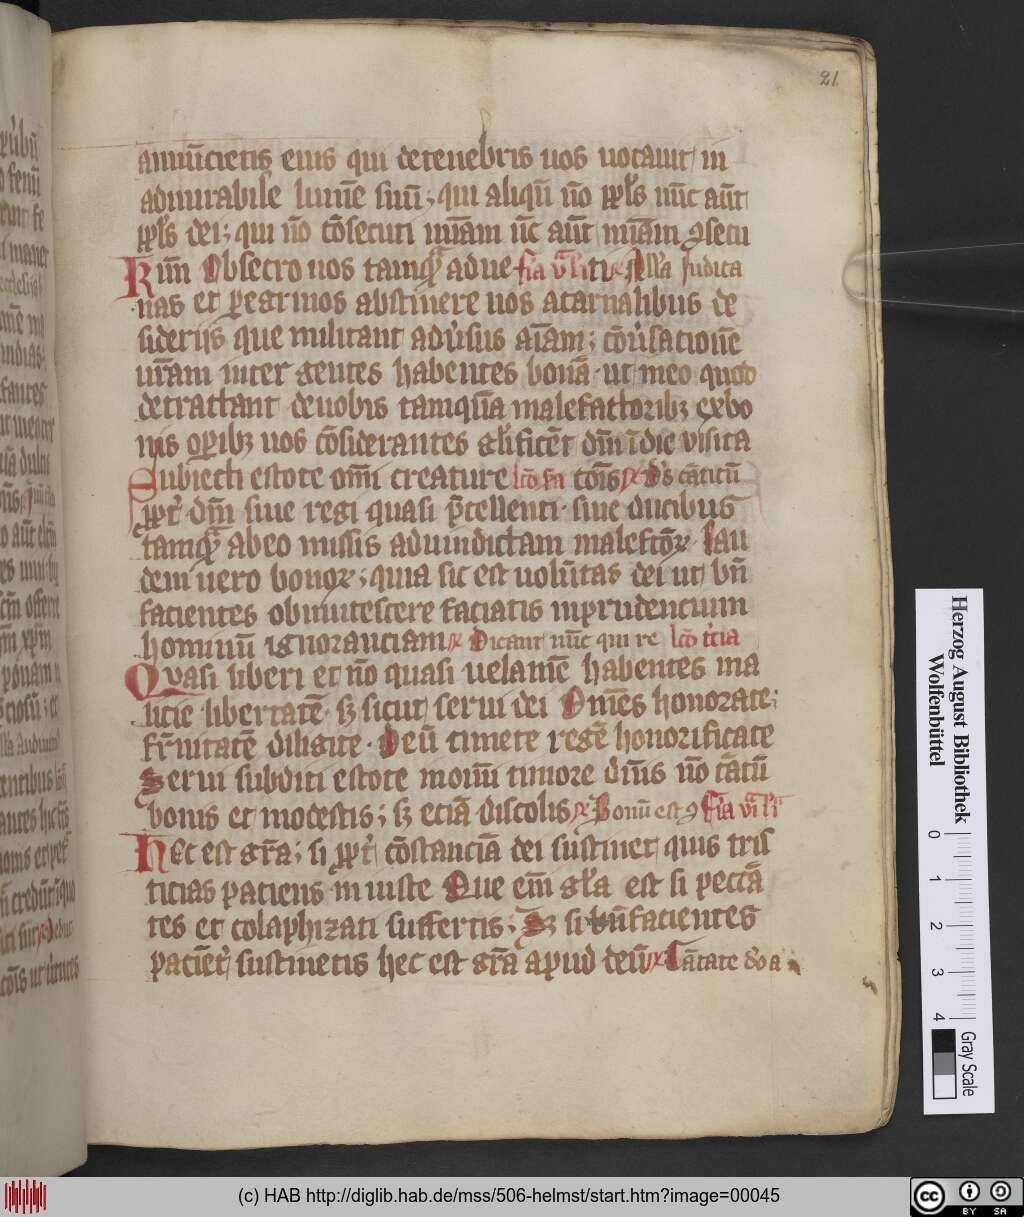 21
annūcietis eius qui detenebris uos uocauit in
admirabile lumē suū; qui aliqn̄ nō ppl̄s nūc aūt
ppl̄s dei; qui nō cōsecuti mīam n̄c aūt mīam ꝯsecu
Km̄ Obsecro uos tamq̄ adue ti All'a Judica
nas et peregrinos abstinere uos acarnalibus de
siderijs que militant adu'sus aīam; cōu'sationē
ur̄am inter gentes habentes bonā ut meo quod
detractant deuobis tamquā malefactoribꝫ exbo
nis opibꝫ uos cōsiderantes gl'ificēt dm̄ īdie visita
Subiecti estote om̄i creature tōis Ds cāticū
ppt' dm̄ siue regi quasi p̄cellenti siue ducibus
tamq̄ abeo missis aduindictam malefcōꝝ lau
dem uero bonoꝝ; quia sic est uolūtas dei ut bn̄
facientes obmutescere faciatis inprudencium
hominū ignoranciam Dicant nūc qui re lcō t'cia
Quasi liberi et nō quasi uelamē habentes ma
licie libertatē sꝫ sicut serui dei Om̄es honorate;
fr̄nitatē diligite Deū timete regē honorificate
Serui subditi estote in omī timore dn̄is nō tātū
bonis et modestis; sꝫ eciā discolis Bonū est ꝯ f'ia vi l'i
Hec est gr̄a; si ppt' cōstanciā dei sustinet quis tris
ticias paciens in iuste Que em̄ gl'a est si peccā
tes et colaphizati suffertis; Sꝫ si bn̄facientes
paciēt' sustinetis hec est gr̄a apud deū Cātate do a
Herzog August Bibliothek
Wolfenbüttel
0 1 2 3 4
Gray Scale
(c) HAB http://diglib.hab.de/mss/506-helmst/start.htm?image=00045
cc BY SA